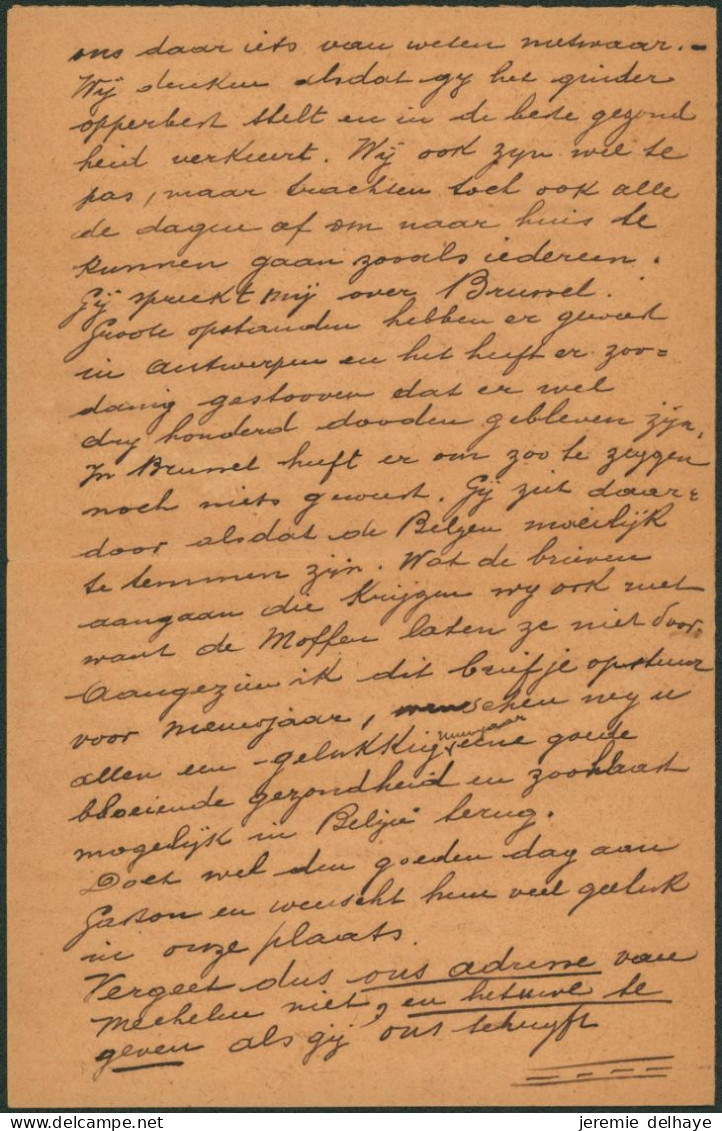 ons daar iets van weten netwaar. -
Wij denken alsdat gy het ginder
opperbest stelt en in de beste gezond
heid verkeert. Wij ook zyn wel te
pas, maar trachten toch ook alle
de dagen af om naar huis te
kunnen gaan zooals iedereen.
Gij spreekt mij over Brussel.
Groote opstanden hebben er geweest
in Antwerpen en het heeft er zoo=
danig gestooven dat er wel
dry honderd dooden gebleven zijn.
In Brussel heeft er om zoo te zeggen
noch niets geweest. Gij ziet daar=
door alsdat de Belgen moeilijk
te temmen zijn. Wat de brieven
aangaan die krijgen wy ook niet
want de Moffen laten ze niet door.
Aangezien ik dit briefje opstuur
voor nieuwjaar, wenschen wy u
allen een gelukkig nieuwjaar eene goede
bloeiende gezondheid en zoohaast
mogelijk in België terug.
Doet wel den goeden dag aan
Gaston en wenscht hem veel geluk
in onze plaats.
Vergeet dus ons adresse van
Mechelen niet, en het uwe te
geven als gij ons schryft
jeremie delhaye